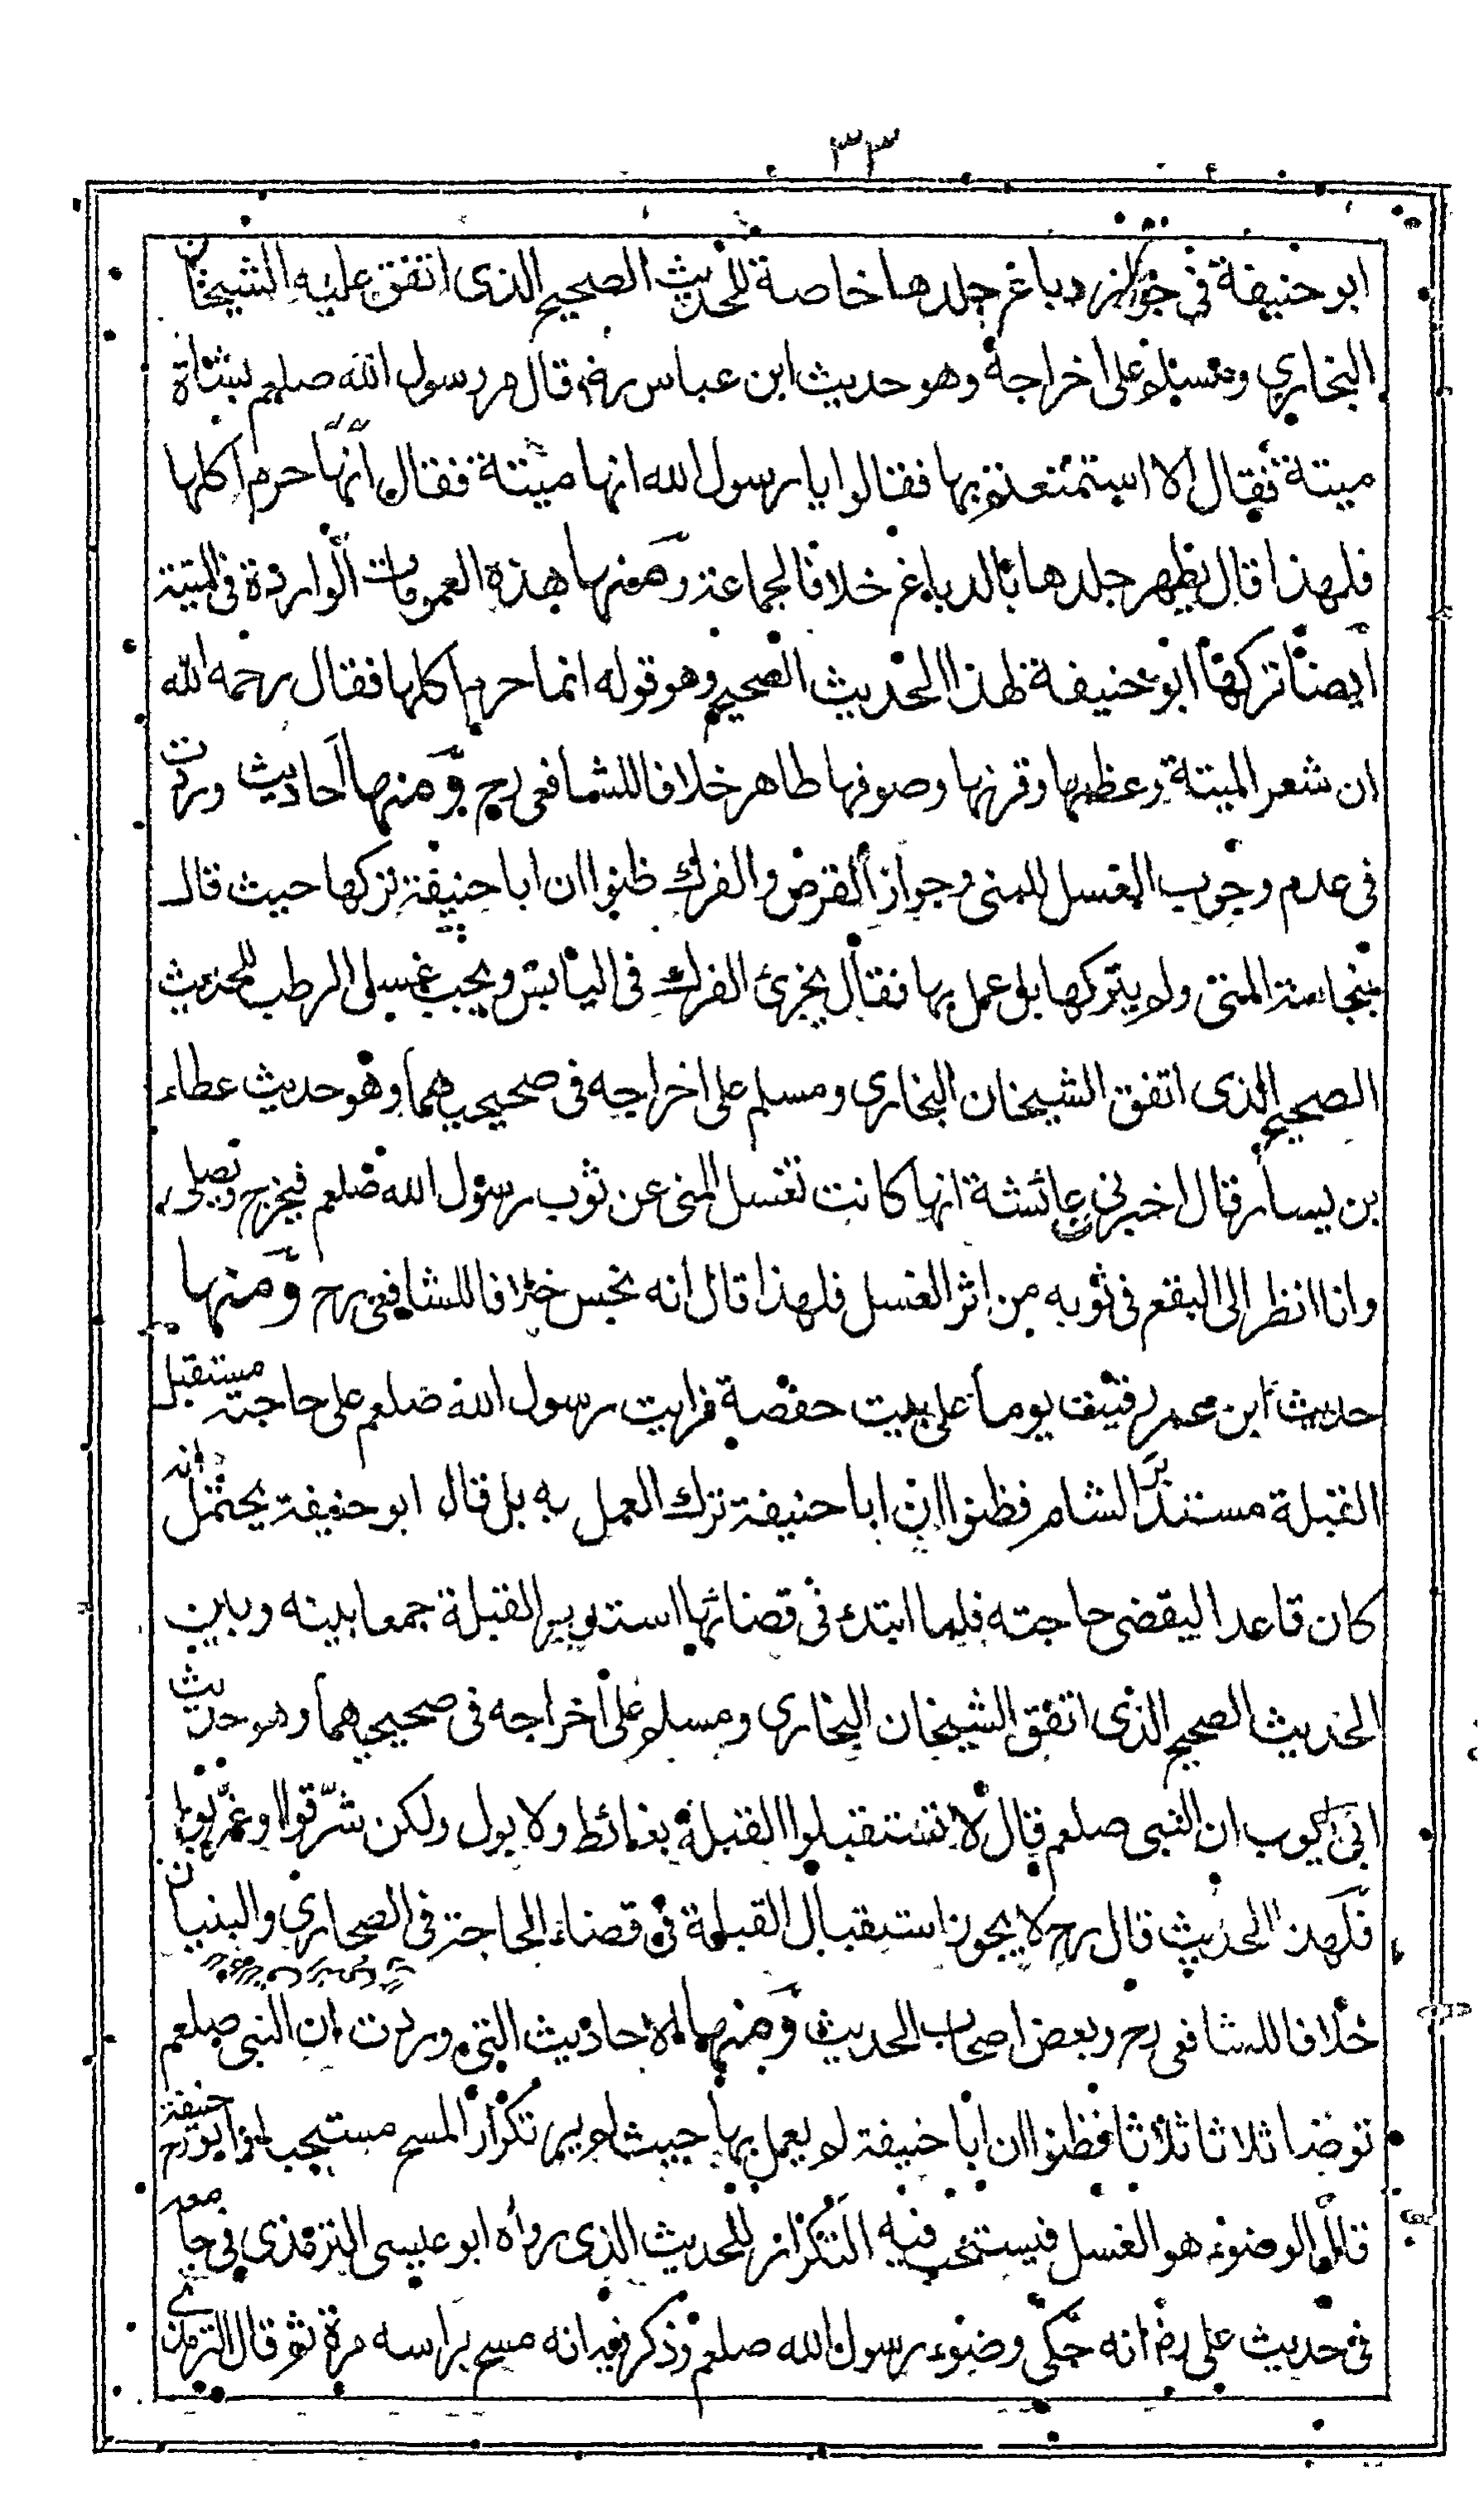 ٣٣
ابو حنيفة في جواز دباغ جلدها خاصة للحديث الصحيح الذى اتفق عليه الشيخان
البخاري ومسلم على اخراجة وهو حديث ابن عباس رض قال مر رسول الله صلعم بشاة
ميتة فقال الا استمتعتم بها فقالوا يا رسول الله انها ميتة فقال انما حرم اكلها
فلهذا قال يطهر جلدها بالدباغ خلافا لجماعة ومنها هذه العمومات الواردة في الميتة
ايضا تركها ابو حنيفة لهذا الحديث الصحيح وهو قوله انما حرم اكلها فقال رحمه الله
ان شعر الميتة وعظمها وقرنها وصوفها طاهر خلافا للشافعى رح ومنها احاديث وردت
فى عدم وجوب الغسل للمنى وجواز القرض والفرك ظنوا ان ابا حنيفة تركها حيث قال
بنجاسة المنى ولم يتركها بل عمل بها فقال يجزئ الفرك فى اليابس ويجب غسل الرطب للحديث
الصحيح الذى اتفق الشيخان البخارى ومسلم على اخراجه فى صحيحيهما وهو حديث عطاء
بن يسار قال اخبرني عائشة انها كانت تغسل المنى عن ثوب رسول الله صلعم فيخرج ويصلى
وانا انظر الى البقع فى ثوبه من اثر الغسل فلهذا قال انه نجس خلافا للشافعى رح ومنها
حديث ابن عمر رقيت يوما على بيت حفصة فرايت رسول الله صلعم على حاجته مستقبل
القبلة مستدبر الشام فظنوا ان ابا حنيفة ترك العمل به بل قال ابو حنيفة يحتمل انه
كان قاعدا ليقضى حاجته فلما ابتدء فى قضائها استدبر القبلة جمعا بينه وبين
الحديث الصحيح الذى اتفق الشيخان البخارى ومسلم على اخراجه فى صحيحيهما وهو حديث
ابى ايوب ان النبى صلعم قال لا تستقبلوا القبلة بغائط ولا بول ولكن شرّقوا او غرّبوا
فلهذا الحديث قال رح لا يجوز استقبال القبلة فى قضاء الحاجة فى الصحارى والبنيان
خلافا للشافعى رح وبعض اصحاب الحديث ومنها الاحاديث التى وردت ان النبى صلعم
توضا ثلاثا ثلاثا فظنوا ان ابا حنيفة لم يعمل بها حيث لم ير تكرار المسح مستحب ابو حنيفة رح
قال الوضوء هو الغسل فيستحب فيه التكرار للحديث الذى رواه ابو عيسى الترمذى فى جامعه
فى حديث على رض انه حكى وضوء رسول الله صلعم وذكر فيه انه مسح براسه مرة ثم قال الترمذى